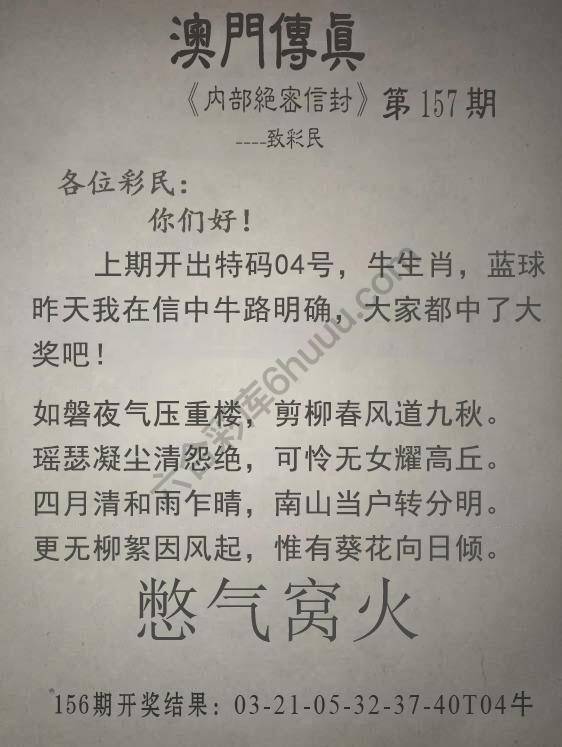 澳門傳眞
《内部絕密信封》第157期
----致彩民
各位彩民：
你们好！
上期开出特码04号，牛生肖，蓝球
昨天我在信中牛路明确，大家都中了大
奖吧！
如磐夜气压重楼，剪柳春风道九秋。
瑶瑟凝尘清怨绝，可怜无女耀高丘。
四月清和雨乍晴，南山当户转分明。
更无柳絮因风起，惟有葵花向日倾。
憋气窝火
156期开奖结果：03-21-05-32-37-40T04牛
六合彩库6huuu.com